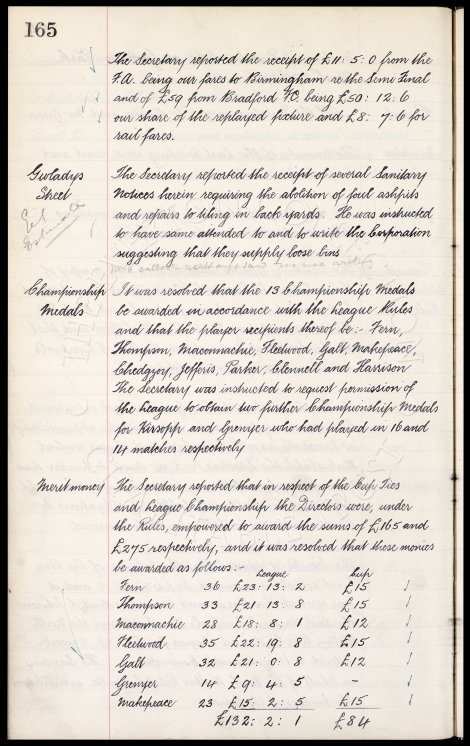 165
The Secretary reported the receipt of £11: 5: 0 from the
F.A. being our fares to Birmingham re the Semi Final
and of £59 from Bradford FC being £50: 12: 6
our share of the replayed fixture and £8: 7: 6 for
rail fares.
Gwladys The Secretary reported the receipt of several Sanitary
Street Notices herein requiring the abolition of foul ashpits
and repairs to tiling in back yards. He was instructed
to have same attended to and to write the Corporation
suggesting that they supply loose bins
Championship It was resolved that the 13 Championship Medals
Medals be awarded in accordance with the League Rules
and that the player recipients thereof be:- Fern,
Thompson, Maconnachie, Fleetwood, Galt, Makepeace,
Chedgzoy, Jefferis, Parker, Clennell and Harrison
The Secretary was instructed to request permission of
the League to obtain two further Championship Medals
for Kirsopp and Grenyer who had played in 16 and
14 matches respectively
Merit money The Secretary reported that in respect of the Cup Ties
and League Championship the Directors were, under
the Rules, empowered to award the sums of £165 and
£275 respectively, and it was resolved that these monies
be awarded as follows:-
League Cup
Fern 36 £23: 13: 2 £15
Thompson 33 £21 13: 8 £15
Maconnachie 28 £18: 8: 1 £12
Fleetwood 35 £22: 19: 8 £15
Galt 32 £21: 0: 8 £12
Grenyer 14 £9: 4: 5 -
Makepeace 23 £15: 2: 5 £15
£132: 2: 1 £84